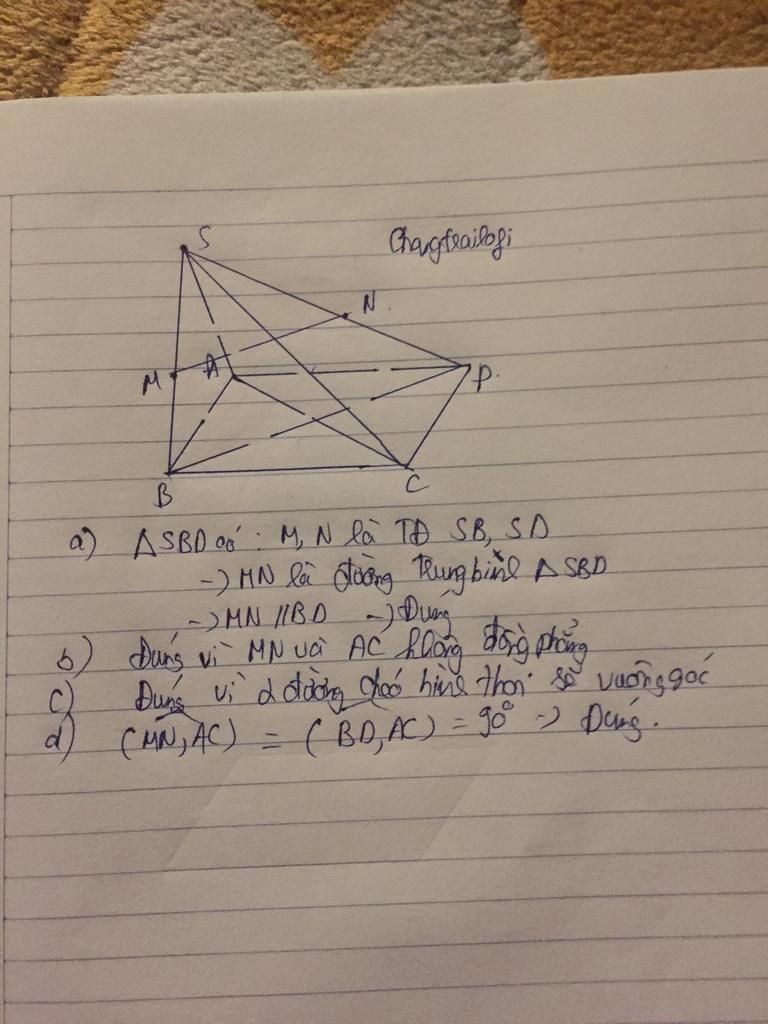 S
Chagtrailofi
N
M
A
D
B
C
a) ΔSBD có : M, N là TĐ SB, SD
-) MN là đường trung bình ΔSBD
-) MN // BD -) Đúng
b) Đúng vì MN và AC không đồng phẳng
c) Đúng vì 2 đường chéo hình thoi sẽ vuông góc
d) (MN, AC) = (BD, AC) = 90° -) Đúng.